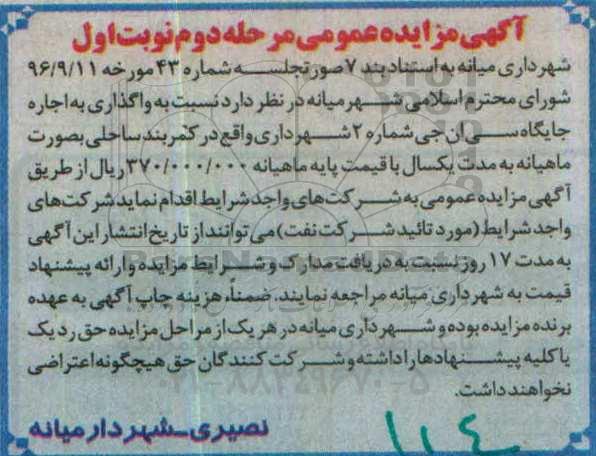 آگهی مزایده عمومی مرحله دوم نوبت اول
شهرداری میانه به استناد بند ۷ صورتجلسه شماره ۴۳ مورخه ۹۶/۹/۱۱
شورای محترم اسلامی شهر میانه در نظر دارد نسبت به واگذاری به اجاره
جایگاه سی ان جی شماره ۲ شهرداری واقع در کمربند ساحلی بصورت
ماهیانه به مدت یکسال با قیمت پایه ماهیانه ۳۷۰/۰۰۰/۰۰۰ ریال از طریق
آگهی مزایده عمومی به شرکت‌های واجد شرایط اقدام نماید شرکت‌های
واجد شرایط (مورد تائید شرکت نفت) می توانند از تاریخ انتشار این آگهی
به مدت ۱۷ روز نسبت به دریافت مدارک و شرایط مزایده و ارائه پیشنهاد
قیمت به شهرداری میانه مراجعه نمایند. ضمناً، هزینه چاپ آگهی به عهده
برنده مزایده بوده و شهرداری میانه در هر یک از مراحل مزایده حق رد یک
یا کلیه پیشنهادها را داشته و شرکت کنندگان حق هیچگونه اعتراضی
نخواهند داشت.
۰۲۱-۸۸۳۴۹۶۷۰-۵
نصیری - شهردار میانه
۱۱۴